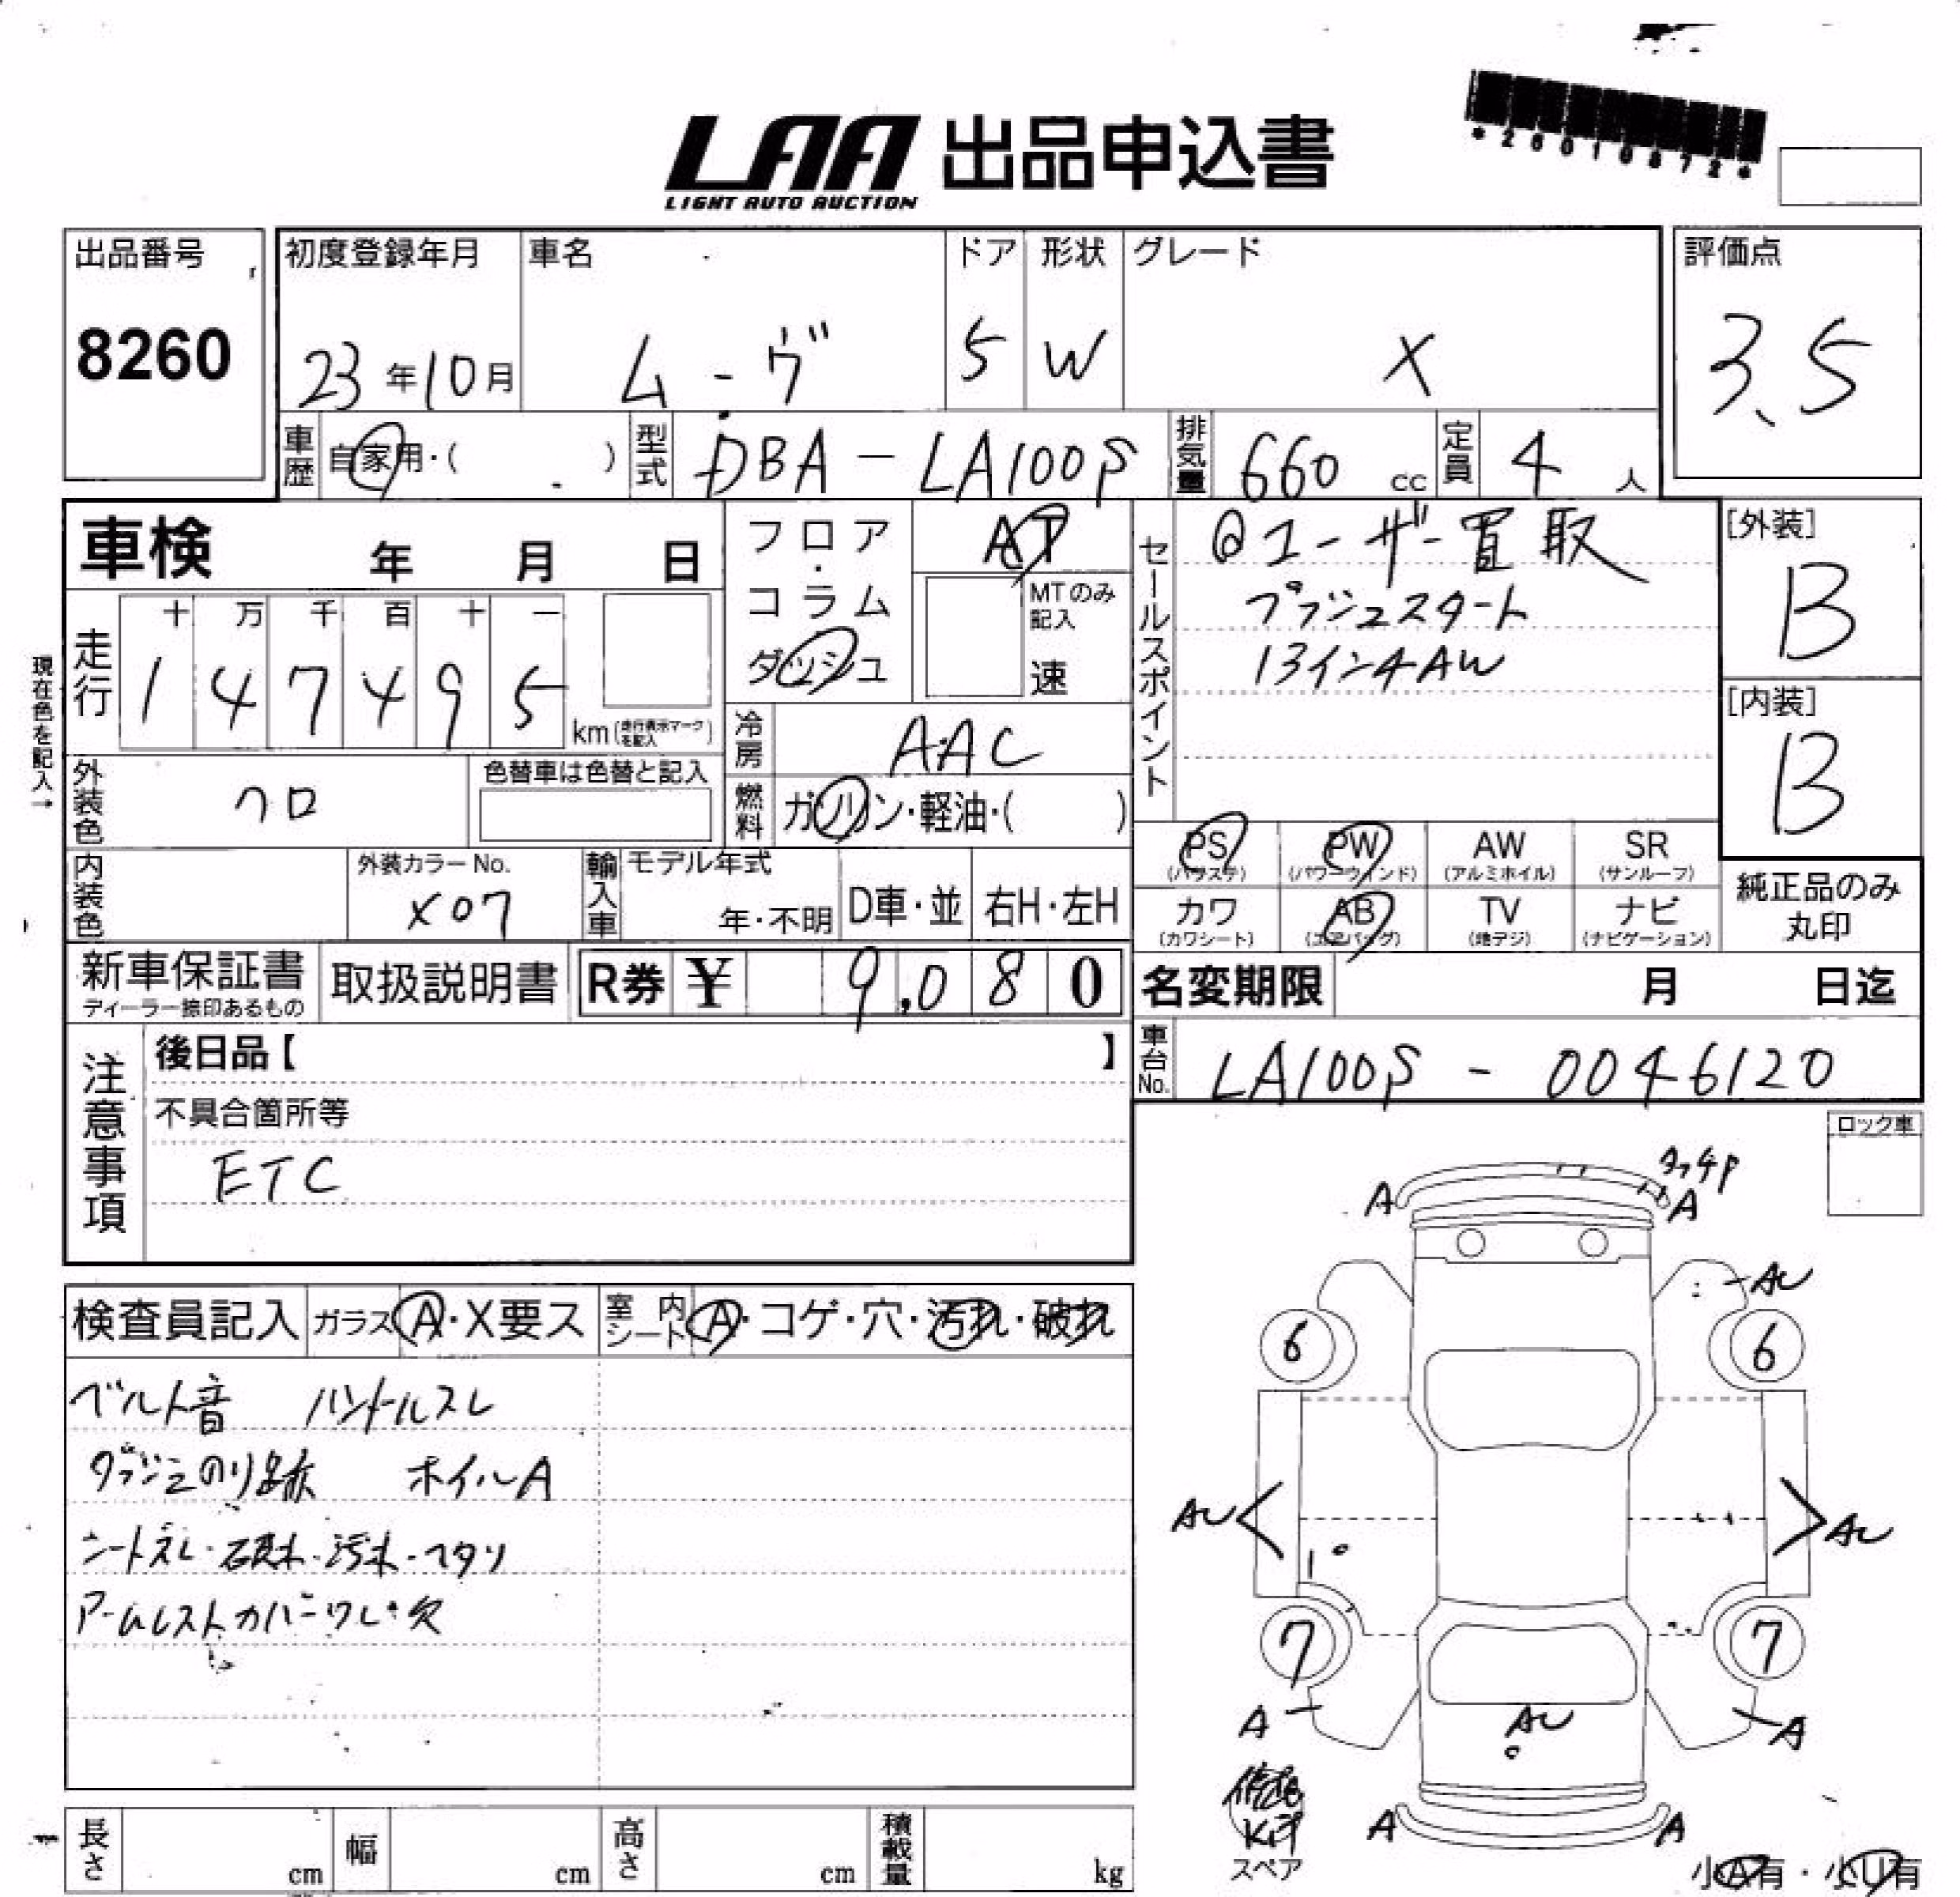 *26010872*
LAA 出品申込書
LIGHT AUTO AUCTION
出品番号 初度登録年月 車名 ドア 形状 グレード 評価点
8260 23年10月 ムーヴ 5 W X 3.5
車歴 自家用・( ) 型式 DBA-LA100S 排気量 660 cc 定員 4 人
車検 年 月 日
フロア・コラム ダッシュ
AT
MTのみ記入
速
セールスポイント
@ユーザー買取
プッシュスタート
13インチAW
[外装]
B
[内装]
B
現在色を記入→
走行 十 万 千 百 十 一
1 4 7 4 9 5 km (走行表示マークを記入)
冷房 AAC
外装色 クロ 色替車は色替と記入
燃料 ガソリン・軽油・( )
PS (パワステ) PW (パワーウインド) AW (アルミホイル) SR (サンルーフ)
カワ (カワシート) AB (エアバッグ) TV (地デジ) ナビ (ナビゲーション)
純正品のみ丸印
内装色 外装カラーNo. X07 輸入車 モデル年式 年・不明 D車・並 右H・左H
新車保証書 取扱説明書 R券 ¥ 9,080
ディーラー捺印あるもの
名変期限 月 日迄
車台No. LA100S - 0046120
注意事項
後日品【 】
不具合箇所等
ETC
ロック車
検査員記入 ガラス A・X要ス 室内シート A・コゲ・穴・汚れ・破れ
ベルト音 ハンドルスレ
ダッシュのり跡 ホイルA
シートスレ・破れ・汚れ・ヘタリ
アームレストカバーワレ・欠
タッチP
A A
AU
6 6
AU AU
7 7
A AU A
A A
スペア
小A有・小U有
長さ cm 幅 cm 高さ cm 積載量 kg